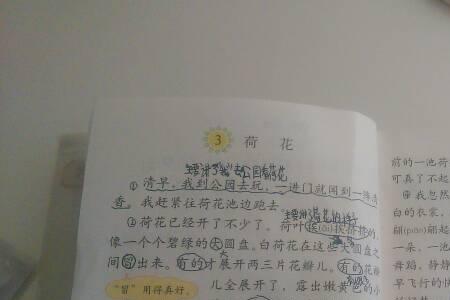 3 荷花
主要讲了我去公园看荷花
① 清早,我到公园去玩,一进门就闻到一阵清
香。我赶紧往荷花池边跑去。
② 荷花已经开了不少了。荷叶挨(āi)挨挤挤的,
像一个个碧绿的大圆盘。白荷花在这些大圆盘之
间冒出来。有的才展开两三片花瓣儿。有的花瓣
儿全展开了,露出嫩黄色的小
“冒”用得真好。
前的一池荷
可真了不起
我忽然
白的衣裳,
翩(piān)翩起
一朵,一池
舞蹈,静静
早飞行的快